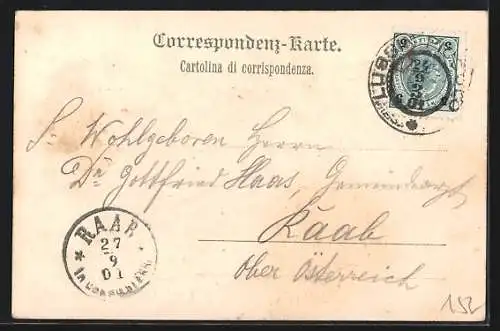 Correspondenz-Karte.
Cartolina di corrispondenza.
5
27
9
01
Sr Wohlgeboren Herrn
Dr. Gottfried Haas, Gemeindearzt
Raab
Ober Österreich
RAAB
27
9
01
152